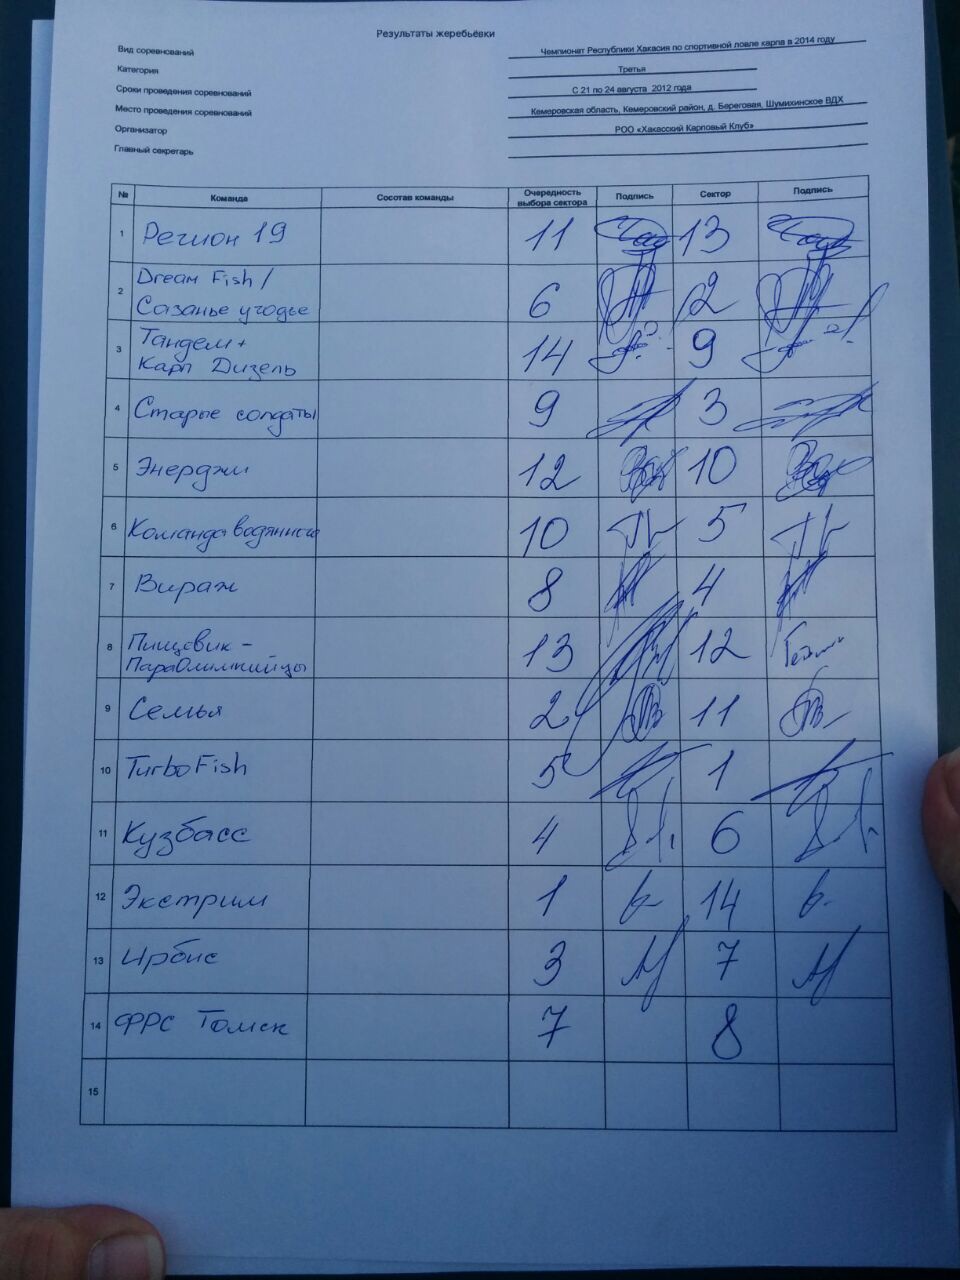 Результаты жеребьёвки
Вид соревнований Чемпионат Республики Хакасия по спортивной ловле карпа в 2014 году
Категория Третья
Сроки проведения соревнований С 21 по 24 августа 2012 года
Место проведения соревнований Кемеровская область, Кемеровский район, д. Береговая, Шумихинское ВДХ
Организатор РОО «Хакасский Карповый Клуб»
Главный секретарь
№ Команда Состав команды Очередность выбора сектора Подпись Сектор Подпись
1 Регион 19 11 13
2 Dream Fish /
Сазанье угодье 6 2
3 Тандем +
Карп Дизель 14 9
4 Старые солдаты 9 3
5 Энерджи 12 10
6 Команда водянного 10 5
7 Вираж 8 4
8 Пищевик -
Параолимпийцы 13 12
9 Семья 2 11
10 TurboFish 5 1
11 Кузбасс 4 6
12 Экстрим 1 14
13 Ирбис 3 7
14 ФРС Томск 7 8
15